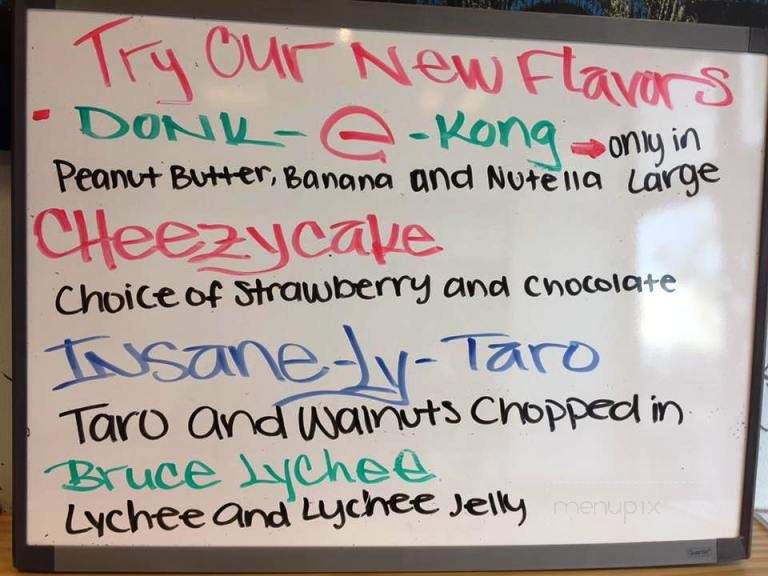 Try Our New Flavors
- DONK-e-Kong → only in
Peanut Butter, Banana and Nutella Large
CHeezycake
Choice of Strawberry and Chocolate
Insane-Ly-Taro
Taro and Walnuts Chopped in
Bruce Lychee
Lychee and Lychee Jelly
menupix